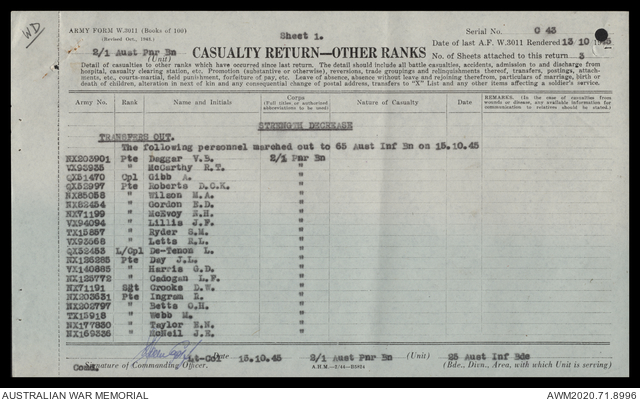 WD
ARMY FORM W.3011 (Books of 100)
(Revised Oct., 1943.)
Sheet 1.
Serial No. C 43
2/1 Aust Pnr Bn
(Unit)
CASUALTY RETURN—OTHER RANKS
Date of last A.F. W.3011 Rendered 13 10 1945
No. of Sheets attached to this return 3
Detail of casualties to other ranks which have occurred since last return. The detail should include all battle casualties, accidents, admission to and discharge from
hospital, casualty clearing station, etc. Promotion (substantive or otherwise), reversions, trade groupings and relinquishments thereof, transfers, postings, attach-
ments, etc., courts-martial, field punishment, forfeiture of pay, etc. Leave of absence, absence without leave and rejoining therefrom, particulars of marriage, birth or
death of children, alteration in next of kin and any consequential change of postal address, transfers to "X" List and any other items affecting a soldier's service.
Army No. Rank Name and Initials Corps (Full titles or authorized abbreviations to be used) Nature of Casualty Date REMARKS. (In the case of casualties from wounds or disease, any available information for communication to relatives should be given)
STRENGTH DECREASE
TRANSFERS OUT.
The following personnel marched out to 65 Aust Inf Bn on 15.10.45
NX203901 Pte Daggar V.B. 2/1 Pnr Bn
VX93935 " McCarthy R.T. "
QX51470 Cpl Gibb A. "
QX52997 Pte Roberts D.C.K. "
NX85058 " Wilson M.A. "
NX82454 " Gordon E.D. "
NX71199 " McEvoy N.H. "
VX94094 " Lillis J.F. "
TX15857 " Ryder S.M. "
VX93568 " Letts R.L. "
QX32453 L/Cpl De-Tenon L. "
NX126285 Pte Day J.L. "
VX140885 " Harris G.D. "
NX125772 " Cadogan L.F. "
NX71191 Sgt Crooks D.W. "
NX203531 Pte Ingram R. "
NX202797 " Betts O.H. "
TX15918 " Webb M. "
NX177830 " Taylor E.N. "
NX169336 " McNeil J.H. "
Lt-Col Date 15.10.45 2/1 Aust Pnr Bn (Unit) 25 Aust Inf Bde
Comd. Signature of Commanding Officer. (Bde., Divn., Area, with which Unit is serving)
AUSTRALIAN WAR MEMORIAL
AWM2020.71.8996